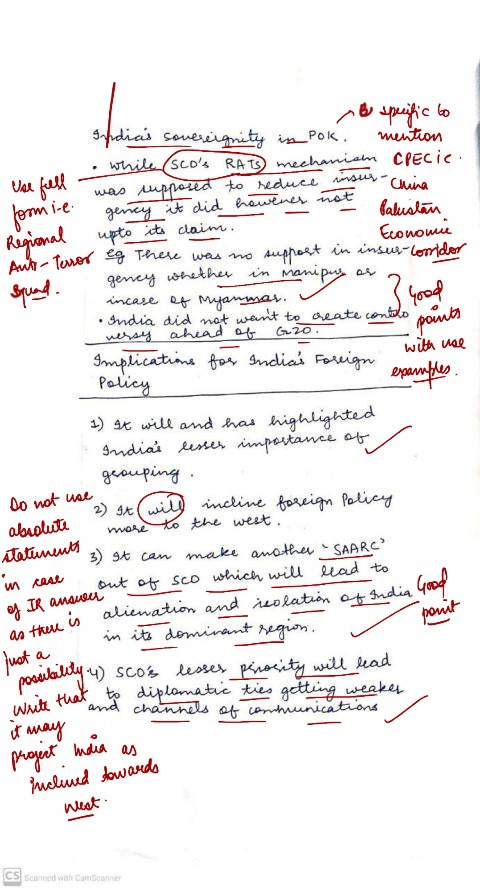 India's sovereignity in POK.
• While SCO's RATs mechanism
was supposed to reduce insur-
gency it did however not
upto its claim.
eg There was no support in insur-
gency whether in Manipur or
incase of Myanmar.
• India did not want to create contro
versy ahead of G20.
Implications for India's Foreign
Policy
1) It will and has highlighted
India's lesser importance of
grouping.
2) It will incline foreign Policy
more to the west.
3) It can make another 'SAARC'
out of SCO which will lead to
alienation and isolation of India
in its dominant region.
4) SCO's lesser piriority will lead
to diplomatic ties getting weaker
and channels of communications
specific to
mention
CPEC i.e.
China
Pakistan
Economic
Corridor
Use full
form i.e.
Regional
Anti-Terror
Squad.
Good
points
with use
examples.
Do not use
absolute
statements
in case
of IR answer
as there is
just a
possibility.
Write that
it may
project India as
inclined towards
West.
Good
point
CS Scanned with CamScanner